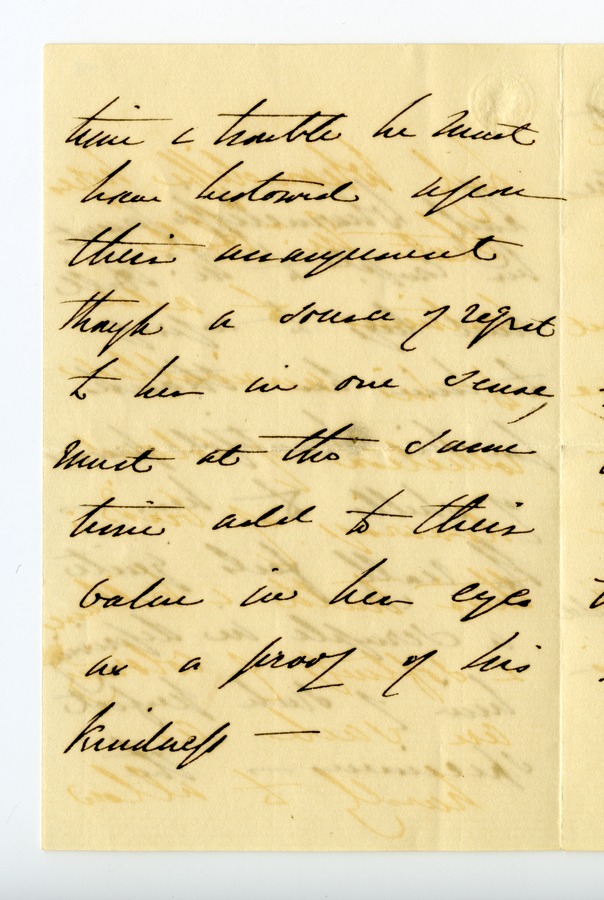 time & trouble he must
have bestowed upon
their arrangement
though a source of regret
to her in one sense,
must at the same
time add to their
value in her eyes
as a proof of his
kindness —